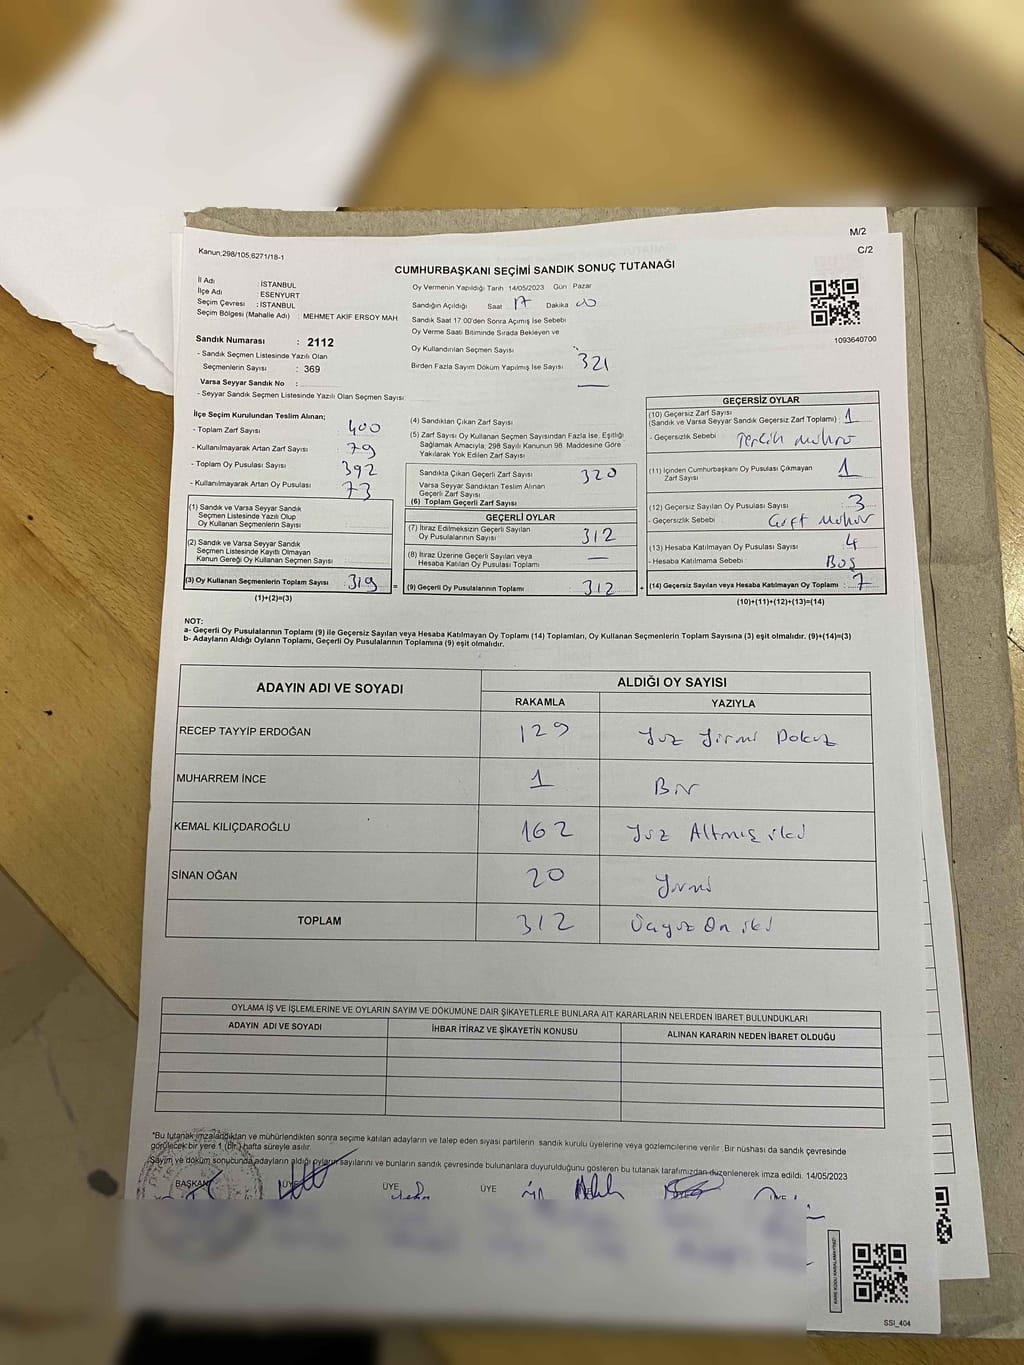 M/2
C/2
Kanun;298/105,6271/18-1
CUMHURBAŞKANI SEÇİMİ SANDIK SONUÇ TUTANAĞI
İl Adı : İSTANBUL
İlçe Adı : ESENYURT
Seçim Çevresi : İSTANBUL
Seçim Bölgesi (Mahalle Adı) : MEHMET AKİF ERSOY MAH
Sandık Numarası : 2112
- Sandık Seçmen Listesinde Yazılı Olan
Seçmenlerin Sayısı : 369
Varsa Seyyar Sandık No :
- Seyyar Sandık Seçmen Listesinde Yazılı Olan Seçmen Sayısı:
Oy Vermenin Yapıldığı Tarih 14/05/2023 Gün : Pazar
Sandığın Açıldığı Saat 17 Dakika 00
Sandık Saat 17:00'den Sonra Açımış İse Sebebi
Oy Verme Saati Bitiminde Sırada Bekleyen ve
Oy Kullandırılan Seçmen Sayısı
Birden Fazla Sayım Döküm Yapılmış İse Sayısı 321
1093640700
İlçe Seçim Kurulundan Teslim Alınan;
- Toplam Zarf Sayısı 400
- Kullanılmayarak Artan Zarf Sayısı 79
- Toplam Oy Pusulası Sayısı 392
- Kullanılmayarak Artan Oy Pusulası 73
(1) Sandık ve Varsa Seyyar Sandık
Seçmen Listesinde Yazılı Olup
Oy Kullanan Seçmenlerin Sayısı
(2) Sandık ve Varsa Seyyar Sandık
Seçmen Listesinde Kayıtlı Olmayan
Kanun Gereği Oy Kullanan Seçmen Sayısı
(3) Oy Kullanan Seçmenlerin Toplam Sayısı : 319 =
(1)+(2)=(3)
(4) Sandıktan Çıkan Zarf Sayısı
(5) Zarf Sayısı Oy Kullanan Seçmen Sayısından Fazla İse, Eşitliği
Sağlamak Amacıyla, 298 Sayılı Kanunun 98. Maddesine Göre
Yakılarak Yok Edilen Zarf Sayısı
Sandıkta Çıkan Geçerli Zarf Sayısı 320
Varsa Seyyar Sandıktan Teslim Alınan
Geçerli Zarf Sayısı
(6) Toplam Geçerli Zarf Sayısı
GEÇERLİ OYLAR
(7) İtiraz Edilmeksizin Geçerli Sayılan
Oy Pusulalarının Sayısı 312
(8) İtiraz Üzerine Geçerli Sayılan veya
Hesaba Katılan Oy Pusulası Toplamı —
(9) Geçerli Oy Pusulalarının Toplamı 312 +
GEÇERSİZ OYLAR
(10) Geçersiz Zarf Sayısı
(Sandık ve Varsa Seyyar Sandık Geçersiz Zarf Toplamı) : 1
- Geçersizlik Sebebi : Tercih Mührü
(11) İçinden Cumhurbaşkanı Oy Pusulası Çıkmayan
Zarf Sayısı 1
(12) Geçersiz Sayılan Oy Pusulası Sayısı 3
- Geçersizlik Sebebi Çift Mühür
(13) Hesaba Katılmayan Oy Pusulası Sayısı 4
- Hesaba Katılmama Sebebi : Boş
(14) Geçersiz Sayılan veya Hesaba Katılmayan Oy Toplamı : 7
(10)+(11)+(12)+(13)=(14)
NOT:
a- Geçerli Oy Pusulalarının Toplamı (9) ile Geçersiz Sayılan veya Hesaba Katılmayan Oy Toplamı (14) Toplamları, Oy Kullanan Seçmenlerin Toplam Sayısına (3) eşit olmalıdır. (9)+(14)=(3)
b- Adayların Aldığı Oyların Toplamı, Geçerli Oy Pusulalarının Toplamına (9) eşit olmalıdır.
ADAYIN ADI VE SOYADI
ALDIĞI OY SAYISI
RAKAMLA YAZIYLA
RECEP TAYYİP ERDOĞAN 129 Yüz Yirmi Dokuz
MUHARREM İNCE 1 Bir
KEMAL KILIÇDAROĞLU 162 Yüz Altmış iki
SİNAN OĞAN 20 Yirmi
TOPLAM 312 Üçyüz On iki
OYLAMA İŞ VE İŞLEMLERİNE VE OYLARIN SAYIM VE DÖKÜMÜNE DAİR ŞİKAYETLERLE BUNLARA AİT KARARLARIN NELERDEN İBARET BULUNDUKLARI
ADAYIN ADI VE SOYADI İHBAR İTİRAZ VE ŞİKAYETİN KONUSU ALINAN KARARIN NEDEN İBARET OLDUĞU
*Bu tutanak imzalandıktan ve mühürlendikten sonra seçime katılan adayların ve talep eden siyasi partilerin sandık kurulu üyelerine veya gözlemcilerine verilir. Bir nüshası da sandık çevresinde
görülecek bir yere 1 (bir) hafta süreyle asılır.
Sayım ve döküm sonucunda adayların aldığı oyların sayılarını ve bunların sandık çevresinde bulunanlara duyurulduğunu gösteren bu tutanak tarafımızdan düzenlenerek imza edildi. 14/05/2023
BAŞKAN ÜYE ÜYE ÜYE
SSI_404